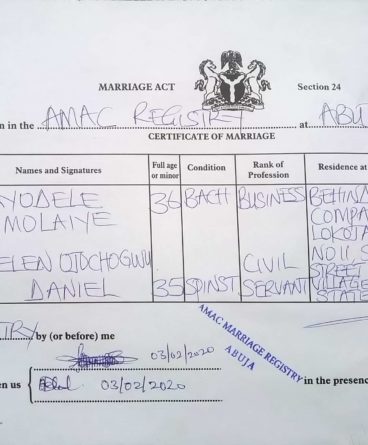 MARRIAGE ACT
Section 24
n in the AMAC REGISTRY at ABU
CERTIFICATE OF MARRIAGE
Names and Signatures Full age or minor Condition Rank of Profession Residence at
YODELE 36 BACH BUSINESS BEHIND
MOLAIYE COMPA
LOKOJA
ELEN OJOCHOGWU CIVIL NO 11 S
STREET
DANIEL 35 SPINST SERVANT VILLAGE
STATE
TRY by (or before) me
03/02/2020
AMAC MARRIAGE REGISTRY
ABUJA
en us 03/02/2020
in the presenc